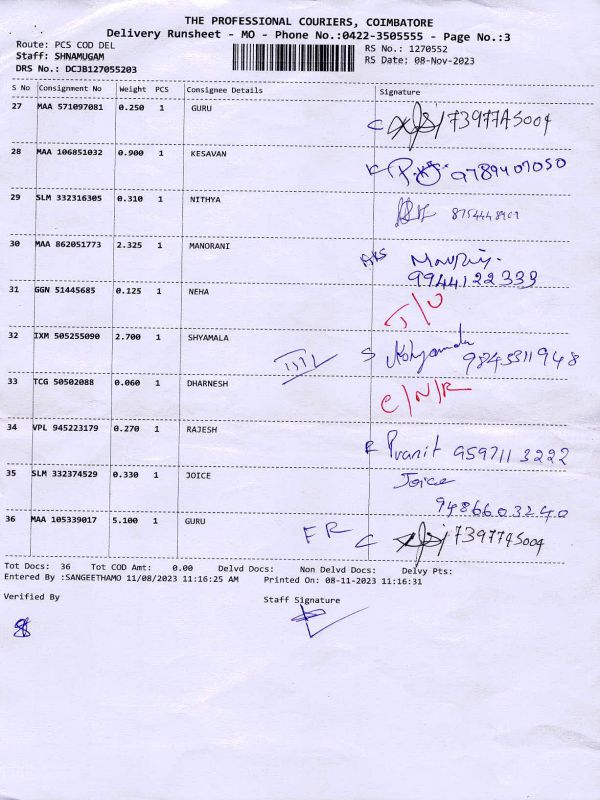 THE PROFESSIONAL COURIERS, COIMBATORE
Delivery Runsheet - MO - Phone No.:0422-3505555 - Page No.:3
Route: PCS COD DEL
RS No.: 1270552
Staff: SHNAMUGAM
RS Date: 08-Nov-2023
DRS No.: DCJB127055203
S No Consignment No Weight PCS Consignee Details Signature
27 MAA 571097081 0.250 1 GURU C
28 MAA 106851032 0.900 1 KESAVAN 9789407050
29 SLM 332316305 0.310 1 NITHYA
30 MAA 862051773 2.325 1 MANORANI
9944122333
31 GGN 51445685 0.125 1 NEHA
32 IXM 505255090 2.700 1 SHYAMALA S 9845311948
33 TCG 50502088 0.060 1 DHARNESH C/N/R
34 VPL 945223179 0.270 1 RAJESH Pranit 9597113222
35 SLM 332374529 0.330 1 JOICE Joice
9486603240
36 MAA 105339017 5.100 1 GURU FR C
Tot Docs: 36 Tot COD Amt: 0.00 Delvd Docs: Non Delvd Docs: Delvy Pts:
Entered By :SANGEETHAMO 11/08/2023 11:16:25 AM Printed On: 08-11-2023 11:16:31
Verified By Staff Signature